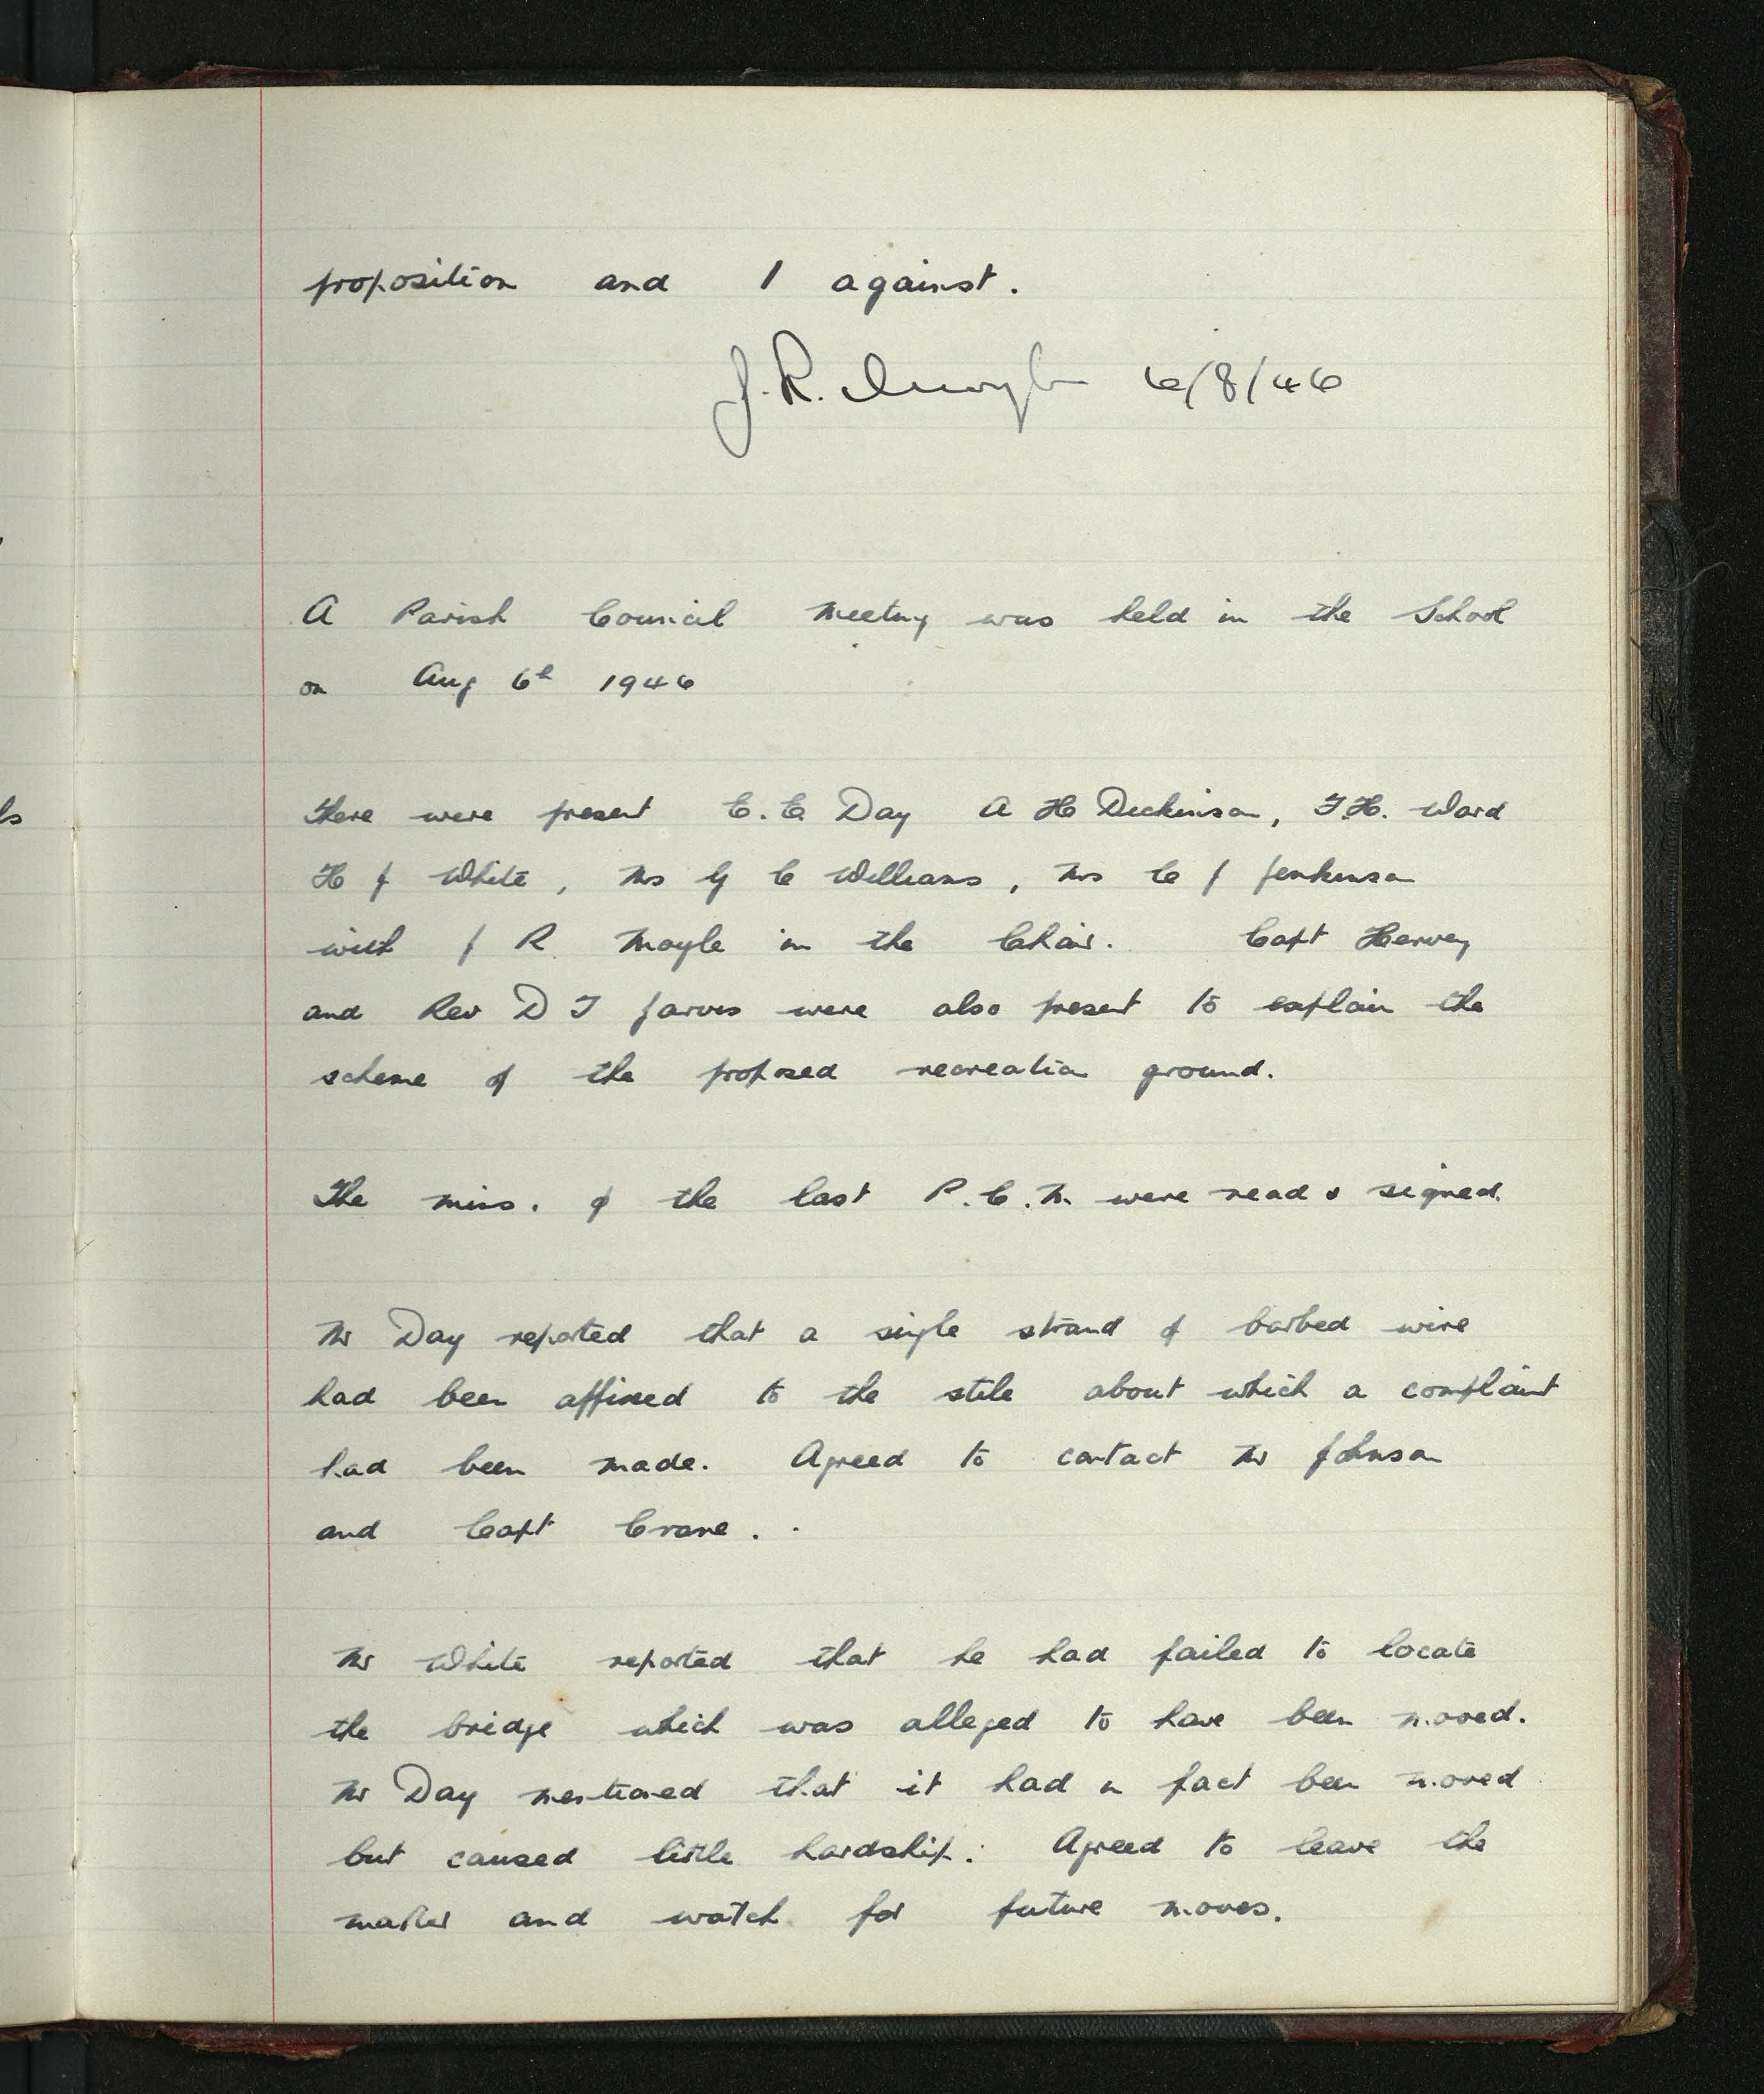 proposition and 1 against.
J. R. Moyle 6/8/46
A Parish Council Meeting was held in the School
on Aug 6th 1946
There were present E. E. Day A H Dickinson, T.H. Ward
H J White, Mrs G C Williams, Mrs C J Jenkinson
with J R Moyle in the Chair. Capt Harvey
and Rev D T Jarvis were also present to explain the
scheme of the proposed recreation ground.
The mins. of the last P.C.M. were read & signed.
Mr Day reported that a single strand of barbed wire
had been affixed to the stile about which a complaint
had been made. Agreed to contact Mr Johnson
and Capt Crane.
Mr White reported that he had failed to locate
the bridge which was alleged to have been moved.
Mr Day mentioned that it had in fact been moved
but caused little hardship. Agreed to leave the
matter and watch for future moves.